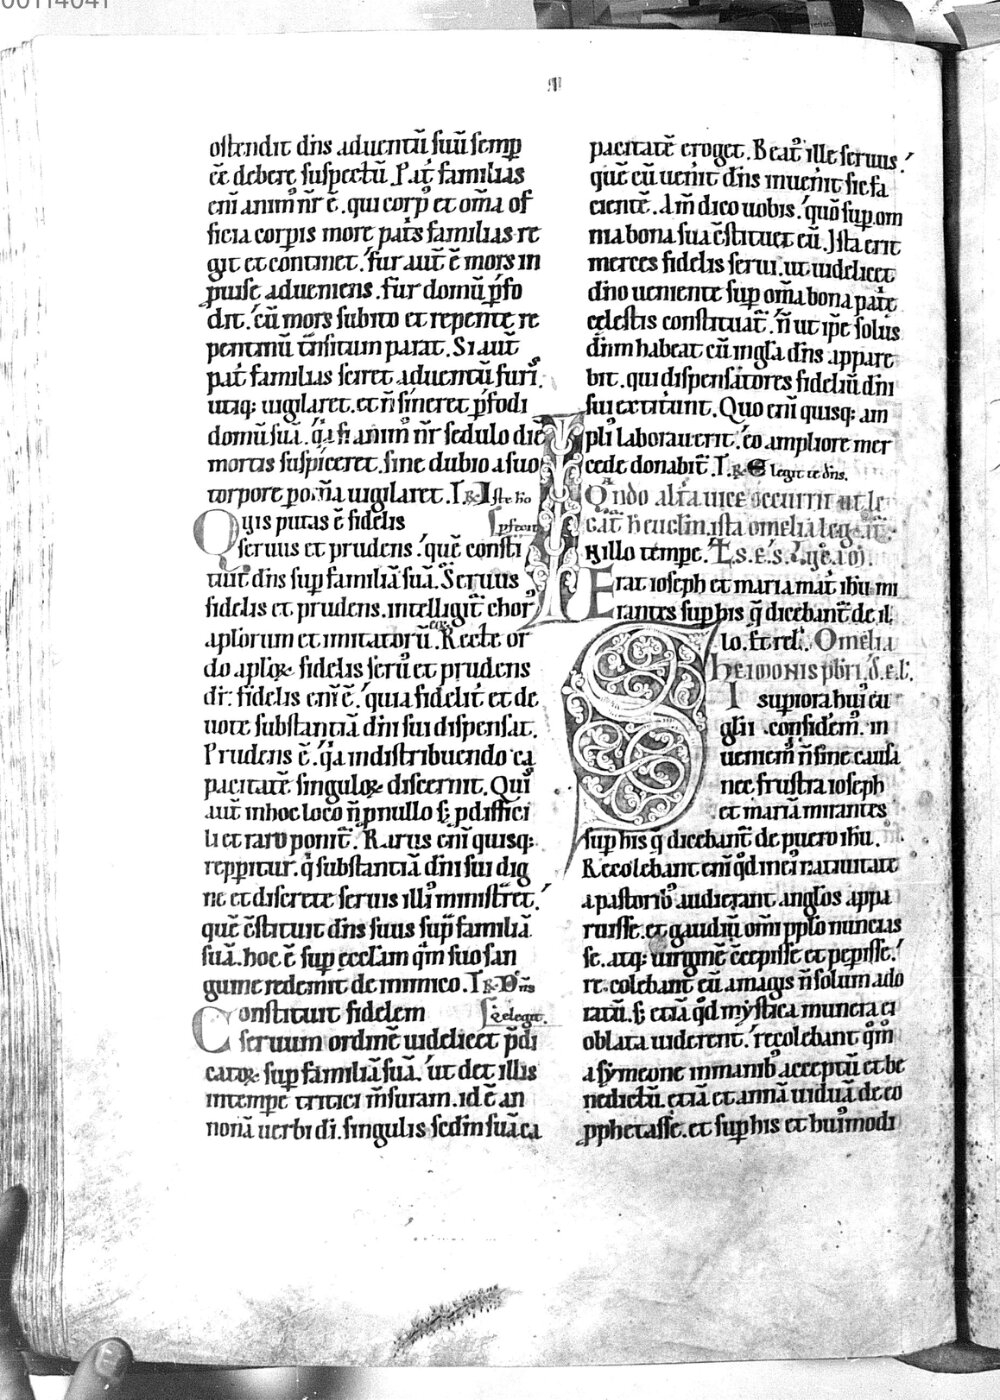 00114041
ostendit dn̄s aduentū suū semꝑ
ēē debere suspectū. Pat̄ familias
enī animꝰ nr̄ ē. qui corpꝰ et om̄a of
ficia corꝑis more pat̄s familias re
git et continet. fur aut̄ ē mors in
ꝓuise adueniens. fur domū ꝑfo
dit. cū mors subito et repente re
pentinū t̄nsitum parat. Si aut̄
pat̄ familias sciret aduentū furis.
utiq; uigilaret. et n̄ sineret ꝑfodi
domū suā. q̄a si animꝰ nr̄ sedulo diē
mortis suspiceret. sine dubio a suo
torpore po m̄a uigilaret. I R Iste hō
Quis putas ē fidelis
seruus et prudens. quē consti
tuit dn̄s suꝑ familiā suā. Seruus
fidelis et prudens. intelligit̄ chorꝰ
aplorum et imitatorū eoꝝ. Recte or
do aploꝝ fidelis seruꝰ et prudens
dr̄. fidelis enī ē. quia fidelit̄ et de
uote substantiā dn̄i sui dispensat.
Prudens ē. q̄a in distribuendo ca
pacitatē singuloꝝ discernit. Quis
aut̄ in hoc loco n̄ ꝓ nullo s; ꝓ difficī
li et raro ponit̄. Rarus enī quisq;
repꝑitur. q̄ substantiā dn̄i sui dig
ne et discrete seruis illiꝰ ministret.
quē ꝯstituit dn̄s suus suꝑ familiā
suā. hoc ē suꝑ eccl̄am q̄m suo san
guine redemit de inimico. I R Dn̄s
Constituit fidelem
seruum ordinē uidelicet p̄di
catoꝝ suꝑ familiā suā. ut det illis
in tempe tritici m̄suram. id ē an
nonā uerbi di. singulis scd̄m suā ca
pacitatē eroget. Beatꝰ ille seruus
quē cū uen̄it dn̄s inuen̄it sic fa
cientē. Am̄ dico uobis. quō suꝑ om
nia bona sua ꝯstituet eū. Ista erit
merces fidelis serui. ut uidelicet
dn̄o ueniente suꝑ om̄a bona patē
celestis constituat̄. n̄ ut ip̄e solus
dn̄m habeat cū in gl̄a dn̄s appare
bit. qui dispensatores fideliū dn̄i
sui extitunt. Quo enī quisq; am
pliꝰ laborauerit. eo ampliore mer
cede donabit̄. I R E legit te dn̄s.
Qn̄do alt̄a uice occurrit ut le
gat̄ h̄ euc̄lm. ista omelia legat̄.
N illo tempe. E.s.e.s.
Erat ioseph et maria mat̄ ihū mi
rantes suꝑ his q̄ dicebant̄ de il
lo. Et rel̄. Omelia
heimonis pbr̄i. d. e. l.
I supiora huiꝰ eu
glii considemꝰ. in
uenimꝰ n̄ sine causa
nec frustra ioseph
et mariā mirantes
suꝑ his q̄ dicebant̄ de puero ihū.
Recolebant enī qd̄ in eiꝰ natiuitate
a pastoribꝰ audierant angl̄os appa
ruisse. et gaudiū om̄i pplo nuncias
se. atq; uirginē ꝯcepisse et peꝑisse.
re colebant eū. a magis n̄ solum ado
ratū. s; etiā qd̄ mystica munera ei
oblata uiderent. recolebant q̄m
a symeone in manibꝰ acceptū et be
nedictū. etiā et annā uiduā de eo
ꝓphetasse. et suꝑ his et huiꝰmodi